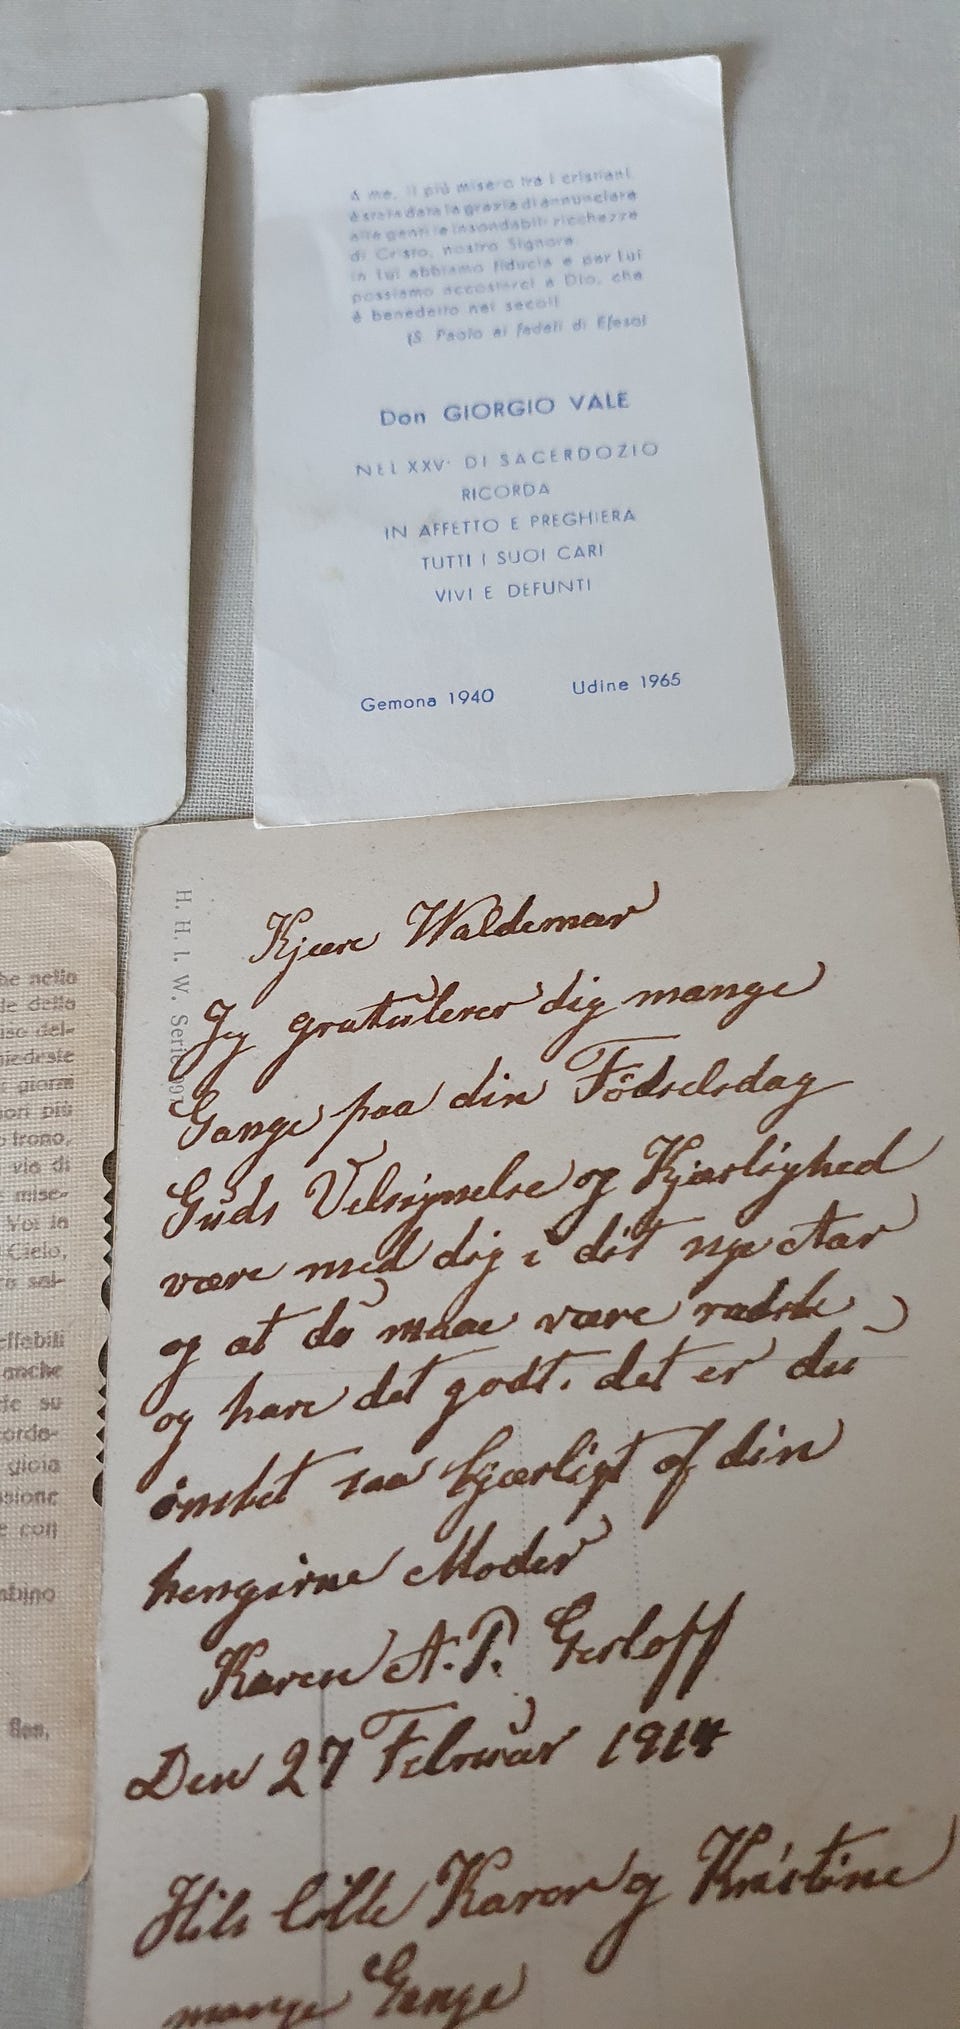 A me, il più misero tra i cristiani,
è stata data la grazia di annunciare
alle genti le insondabili ricchezze
di Cristo, nostro Signore.
In Lui abbiamo fiducia e per Lui
possiamo accostarci a Dio, che
è benedetto nei secoli!
(S. Paolo ai fedeli di Efeso)
Don GIORGIO VALE
NEL XXV· DI SACERDOZIO
RICORDA
IN AFFETTO E PREGHIERA
TUTTI I SUOI CARI
VIVI E DEFUNTI
Gemona 1940 Udine 1965
he nello
le della
iso del-
hiedeste
giorni
ori più
trono,
via di
mise-
Voi la
Cielo,
sal-
effabili
anche
te su
corda-
gioia
sione
e con
mbino
H. H. I. W. Serie
Kjære Waldemar
Jeg gratulerer dig mange
Gange paa din Födselsdag
Guds Velsignelse og Kjærlighed
være med dig i dit nye Aar
og at du maae være raske
og have det godt. det er du
önsket saa kjærligt af din
hengivne Moder
Karen A. P. Gerloff
Den 27 Februar 1914
Hils lille Karen og Kristine
mange Gange